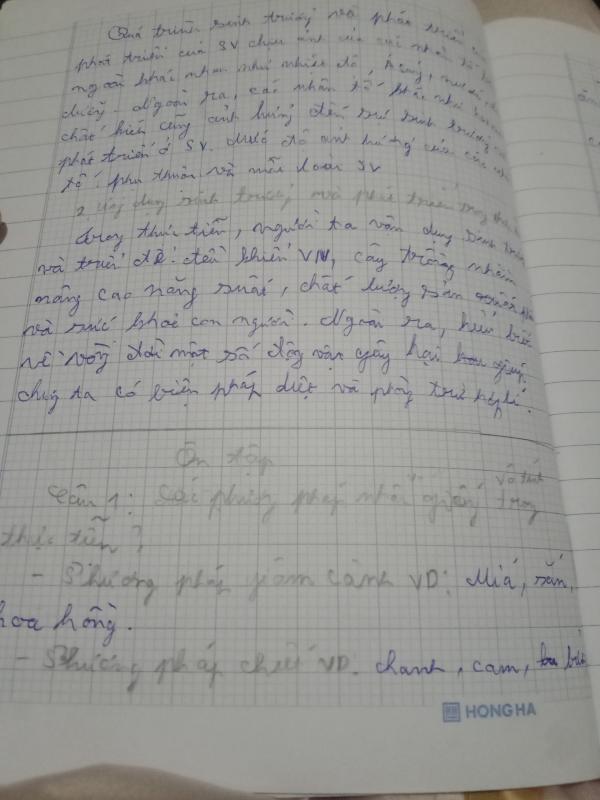 Quá trình sinh trưởng và phát triển
phát triển của SV chịu ảnh của các nhân tố
ngoài khác nhau như nhiệt độ,
dưỡng. Ngoài ra, các nhân tố khác như
chất kiến cũng ảnh hưởng đến sự sinh trưởng
phát triển ở SV. mức độ ảnh hưởng của các
tố phụ thuộc và mỗi loài SV
2. ứng dụng sinh trưởng và phát triển trong
trong thực tiễn, người ta vận dụng sinh
và triển để điều khiển VN, cây trồng nhằm
nâng cao năng suất, chất lượng sản
và sức khoẻ con người. Ngoài ra, hiểu biết
về vòng đời một số động vật gây hại
chúg ta có biện pháp diệt và phòng trừ
Ôn tập
Câu 1: Các phương pháp nhân giống vô tính trong
thực tiễn?
- Phương pháp giâm cành VD: Miá, sắn,
hoa hồng.
- Phương pháp chiết VD. chanh, cam,
HONG HA